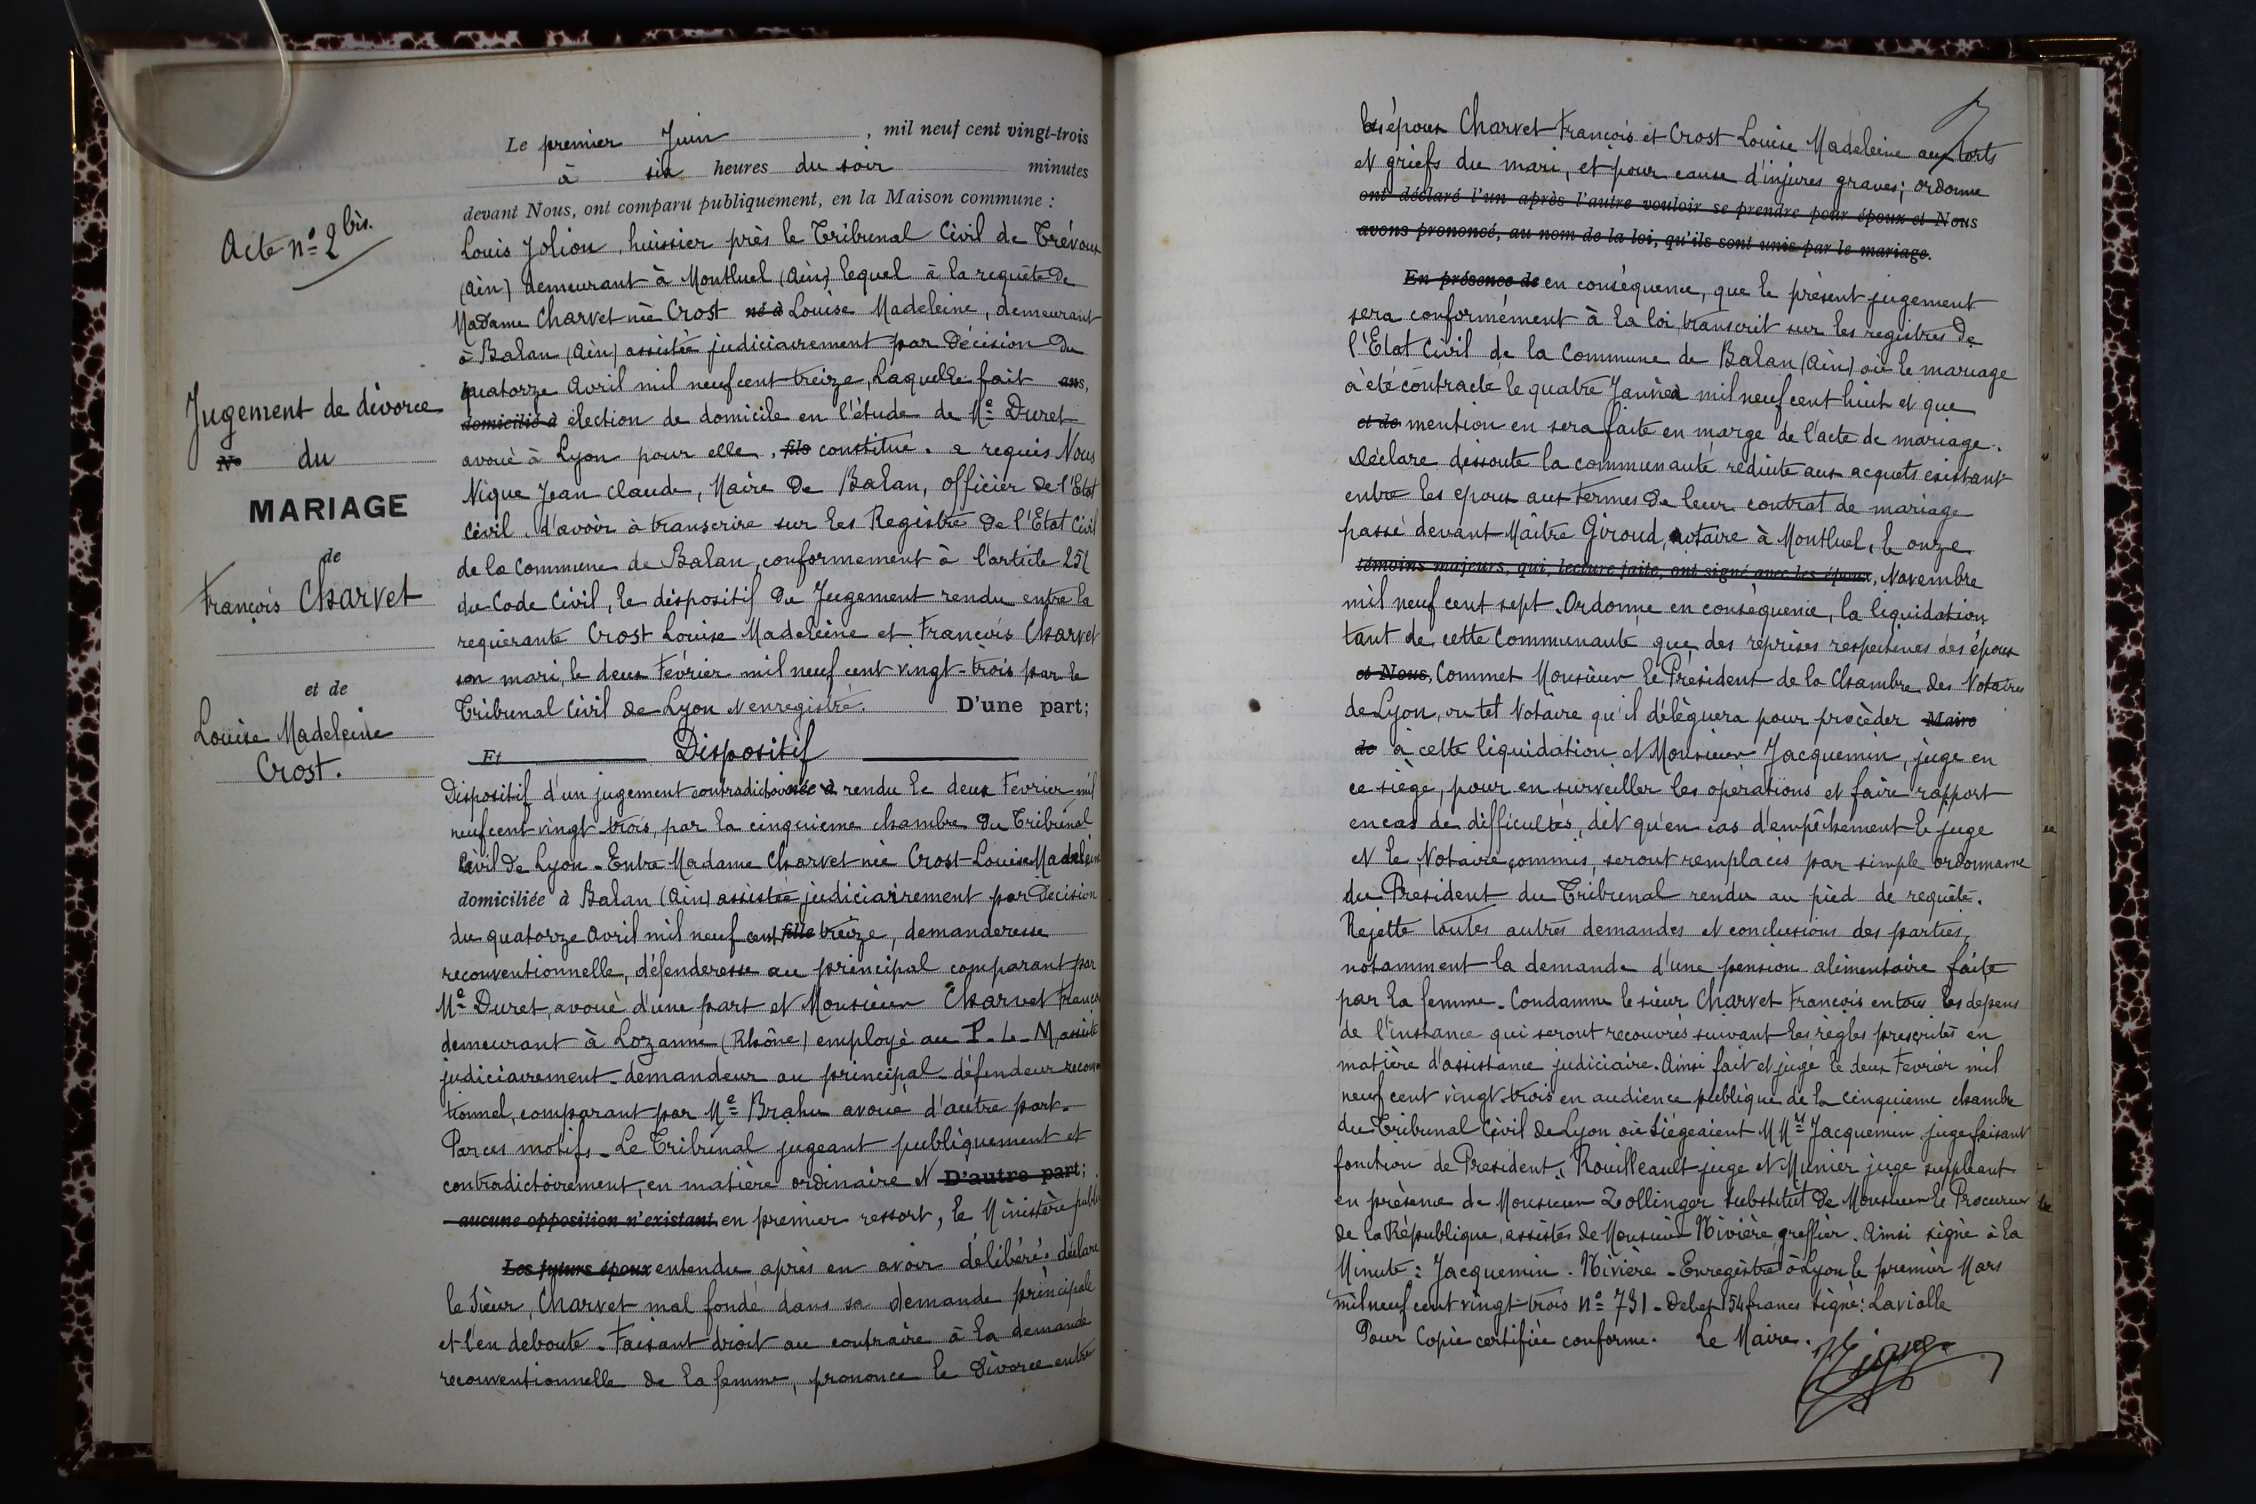 Acte nº 2 bis.
Jugement de divorce
Nº du
MARIAGE
de
François Charvet
et de
Louise Madeleine
Crost.
Le premier Juin, mil neuf cent vingt-trois
à six heures du soir minutes
devant Nous, ont comparu publiquement, en la Maison commune :
Louis Jolion, huissier près le Tribunal Civil de Trévoux
(Ain) demeurant à Montluel (Ain) lequel à la requête de
Madame Charvet née Crost né à Louise Madeleine, demeurant
à Balan (Ain) assistée judiciairement par décision du
quatorze Avril mil neuf cent treize, Laquelle fait ans,
domicilié à élection de domicile en l'étude de Me Duret
avoué à Lyon pour elle, fils constitué. a requis Nous
Nique Jean Claude, Maire de Balan, officier de l'Etat
Civil, d'avoir à transcrire sur les Registre de l'Etat Civil
de la Commune de Balan, conformement à l'article 251
du Code Civil, le dispositif du Jugement rendu entre la
requérante Crost Louise Madeleine et François Charvet
son mari, le deux Février mil neuf cent vingt-trois par le
Tribunal Civil de Lyon et enregistré. D'une part;
Et Dispositif
Dispositif d'un jugement contradictoire née à rendu le deux Février mil
neuf cent vingt trois, par la cinquième chambre du Tribunal
Civil de Lyon - Entre Madame Charvet née Crost Louise Madeleine
domiciliée à Balan (Ain) assistée judiciairement par décision
du quatorze Avril mil neuf cent fille treize, demanderesse
reconventionnelle, défenderesse au principal comparant par
Me Duret, avoué d'une part et Monsieur Charvet François
demeurant à Lozanne (Rhône) employé au P-L-M, assisté
judiciairement - demandeur au principal - défendeur reconven
tionnel, comparant par Me Brahn avoué d'autre part -
Par ces motifs - Le Tribunal jugeant publiquement et
contradictoirement, en matière ordinaire et D'autre part;
aucune opposition n'existant en premier ressort, le Ministère public
Les futurs époux entendu après en avoir délibéré, déclare
le Sieur Charvet mal fondé dans sa demande principale
et l'en deboute - Faisant droit au contraire à la demande
reconventionnelle de la femme, prononce le divorce entre
7
les époux Charvet François et Crost Louise Madeleine aux torts
et griefs du mari, et pour cause d'injures graves; ordonne
ont déclaré l'un après l'autre vouloir se prendre pour époux et Nous
avons prononcé, au nom de la loi, qu'ils sont unis par le mariage.
En présence de en conséquence, que le présent jugement
sera conformément à la loi transcrit sur les registres de
l'Etat Civil de la Commune de Balan (Ain) où le mariage
à été contracté le quatre Janvier mil neuf cent huit et que
et de mention en sera faite en marge de l'acte de mariage.
Déclare dissoute la communauté réduite aux acquets existant
entre les epoux aux termes de leur contrat de mariage
passé devant Maître Giroud, notaire à Montluel, le onze
témoins majeurs, qui, lecture faite, ont signé avec les époux, Novembre
mil neuf cent sept. Ordonne en conséquence, la liquidation
tant de cette Communauté que des reprises respectives des époux
et Nous, Commet Monsieur le Président de la Chambre des Notaires
de Lyon, ou tel Notaire qu'il délèguera pour procèder Maire
de à cette liquidation et Monsieur Jacquemin, juge en
ce siège, pour en surveiller les opérations et faire rapport
en cas de difficultés, dit qu'en cas d'empêchement le juge
et le Notaire commis, seront remplacés par simple ordonnance
du President du Tribunal rendu au pied de requête.
Rejette toutes autres demandes et conclusions des parties,
notamment la demande d'une pension alimentaire faite
par la femme - Condamne le sieur Charvet François en tous les dépens
de l'instance qui seront recouvrés suivant les règles prescrites en
matière d'assistance judiciaire. Ainsi fait et jugé le deux Fevrier mil
neuf cent vingt-trois en audience publique de la cinquième chambre
du Tribunal Civil de Lyon où Siégeaient MMrs Jacquemin juge faisant
fonction de President, Rouilleault juge et Munier juge suppleant
en présence de Monsieur Zollinger substitut de Monsieur le Procureur
de la République, assistés de Monsieur Nivière, greffier. Ainsi signé à la
Minute : Jacquemin. Nivière - Enregistré à Lyon le premier Mars
mil neuf cent vingt-trois nº 731 - Debet 154 francs signé : Laviolle
Pour Copie certifiée conforme. Le Maire.
Nique